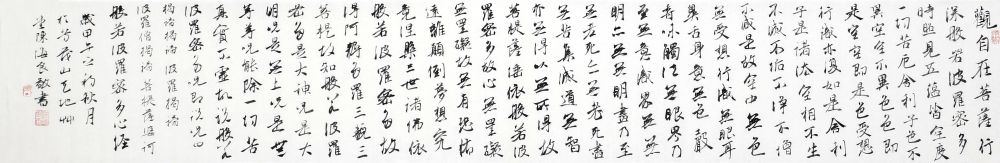 觀自在菩薩行
深般若波羅蜜多
時照見五蘊皆空度
一切苦厄舍利子色不
異空空不異色色即
是空空即是色受想
行識亦復如是舍利
子是諸法空相不生
不滅不垢不淨不增
不減是故空中無色
無受想行識無眼耳
鼻舌身意無色聲
香味觸法無眼界乃
至無意識界無無
明亦無無明盡乃至
無老死亦無老死盡
無苦集滅道無智
亦無得以無所得故
菩提薩埵依般若波
羅蜜多故心無罣礙
無罣礙故無有恐怖
遠離顛倒夢想究
竟涅槃三世諸佛依
般若波羅蜜多故
得阿耨多羅三藐三
菩提故知般若波羅
蜜多是大神咒是大
明咒是無上咒是無
等等咒能除一切苦
真實不虛故說般若
波羅蜜多咒即說咒曰
揭諦揭諦波羅揭諦
波羅僧揭諦菩提薩婆訶
般若波羅蜜多心經
歲甲午之初秋月
於山天心艸
堂陳海良敬書